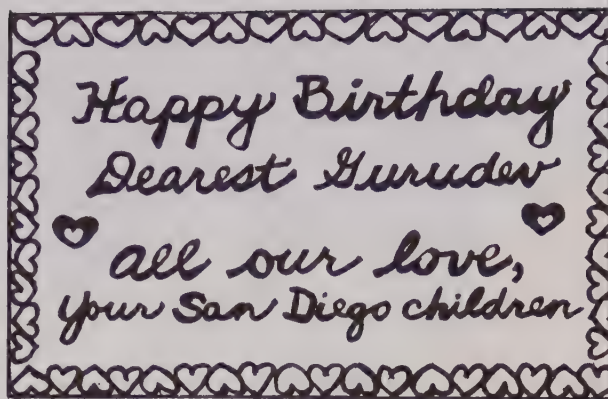 Happy Birthday
Dearest Gurudev
all our love,
your San Diego children